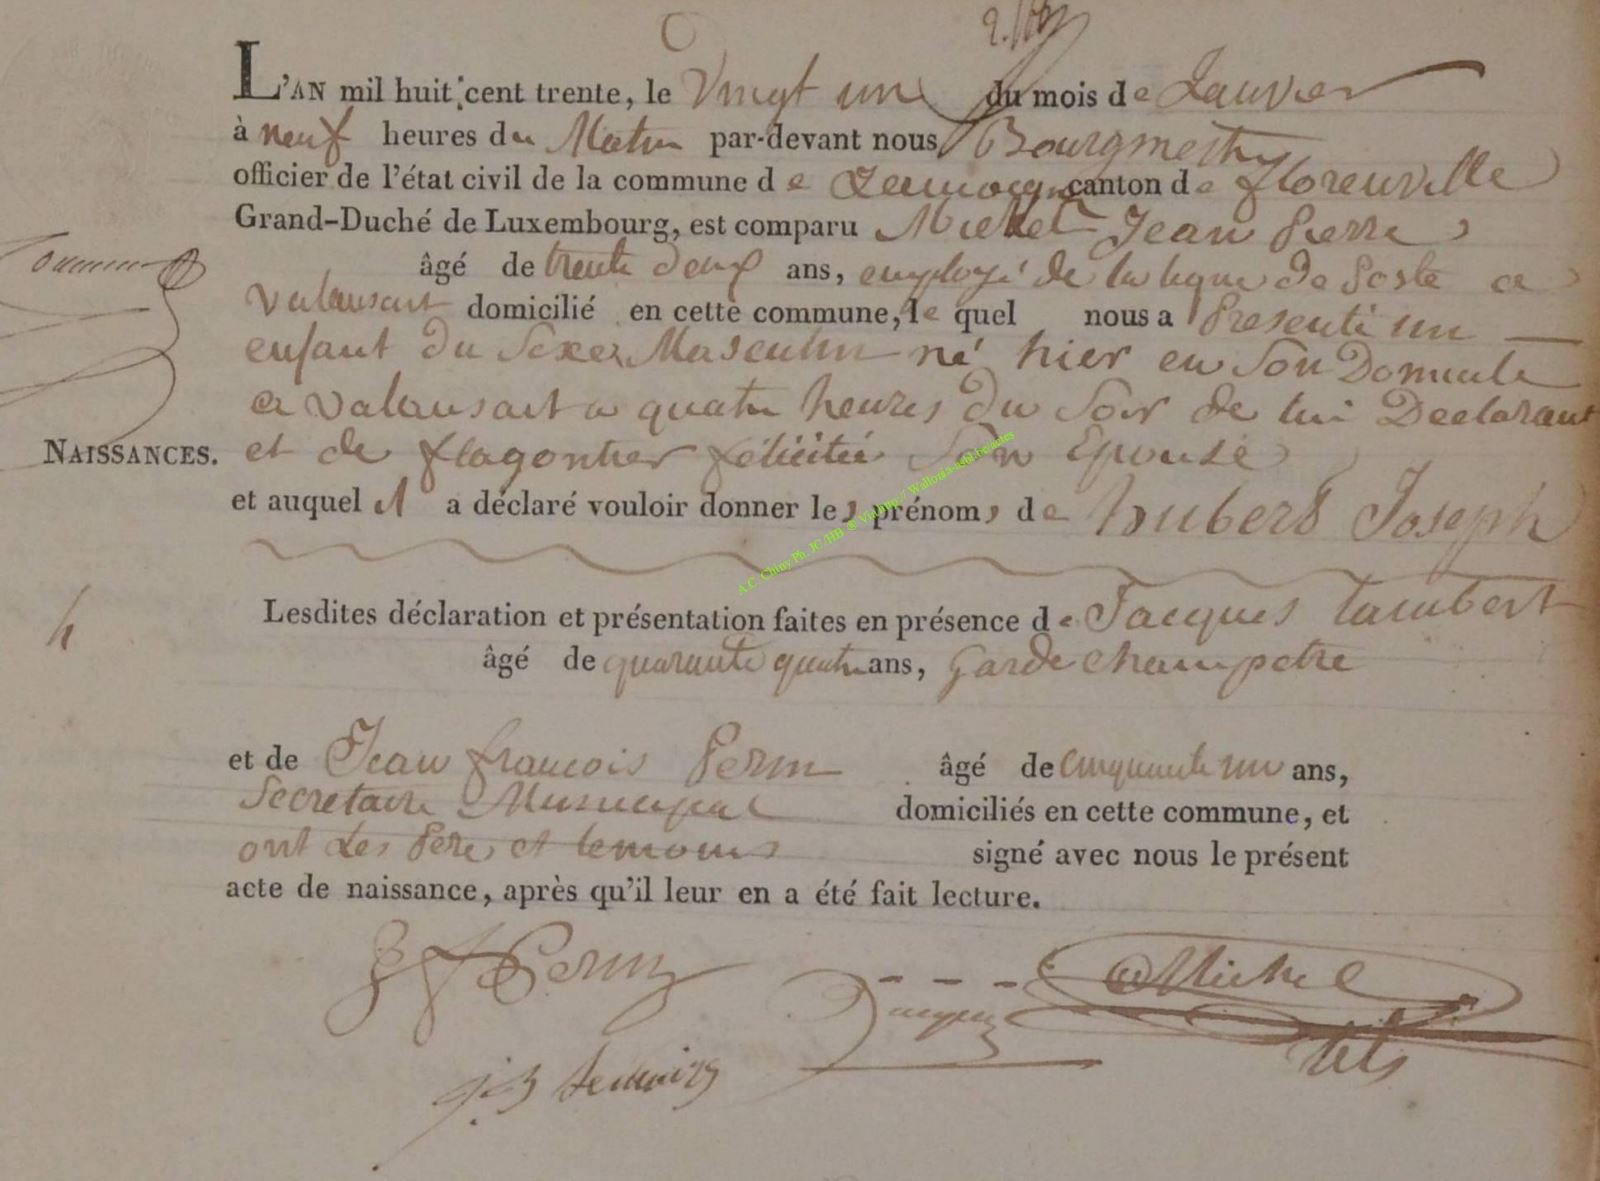 L'AN mil huit cent trente, le Vingt un du mois de Janvier
à neuf heures du Matin par-devant nous Bourgmestre
officier de l'état civil de la commune de Jamoigne canton de florenville
Grand-Duché de Luxembourg, est comparu Michel Jean Pierre
âgé de trente deux ans, employé de la ligne de Poste a
Valansart domicilié en cette commune, le quel nous a Presenté un
enfant du Sexe Masculin né hier en Son Domicile
a Valansart a quatre heures du Soir de lui Declarant
NAISSANCES. et de flagontier félicitée Son Epouse
et auquel il a déclaré vouloir donner les prénoms de hubert Joseph
h
Lesdites déclaration et présentation faites en présence de Jacques Lambert
âgé de quarante quatre ans, garde champetre
et de Jean francois Perin âgé de cinquante un ans,
Secretaire Municipal domiciliés en cette commune, et
ont Les Pere et temoins signé avec nous le présent
acte de naissance, après qu'il leur en a été fait lecture.
JF Perin Michel
Jacques
A.C. Chiny Ph. JC/HB @ Viatipo / Wallonia-asbl.be/actes